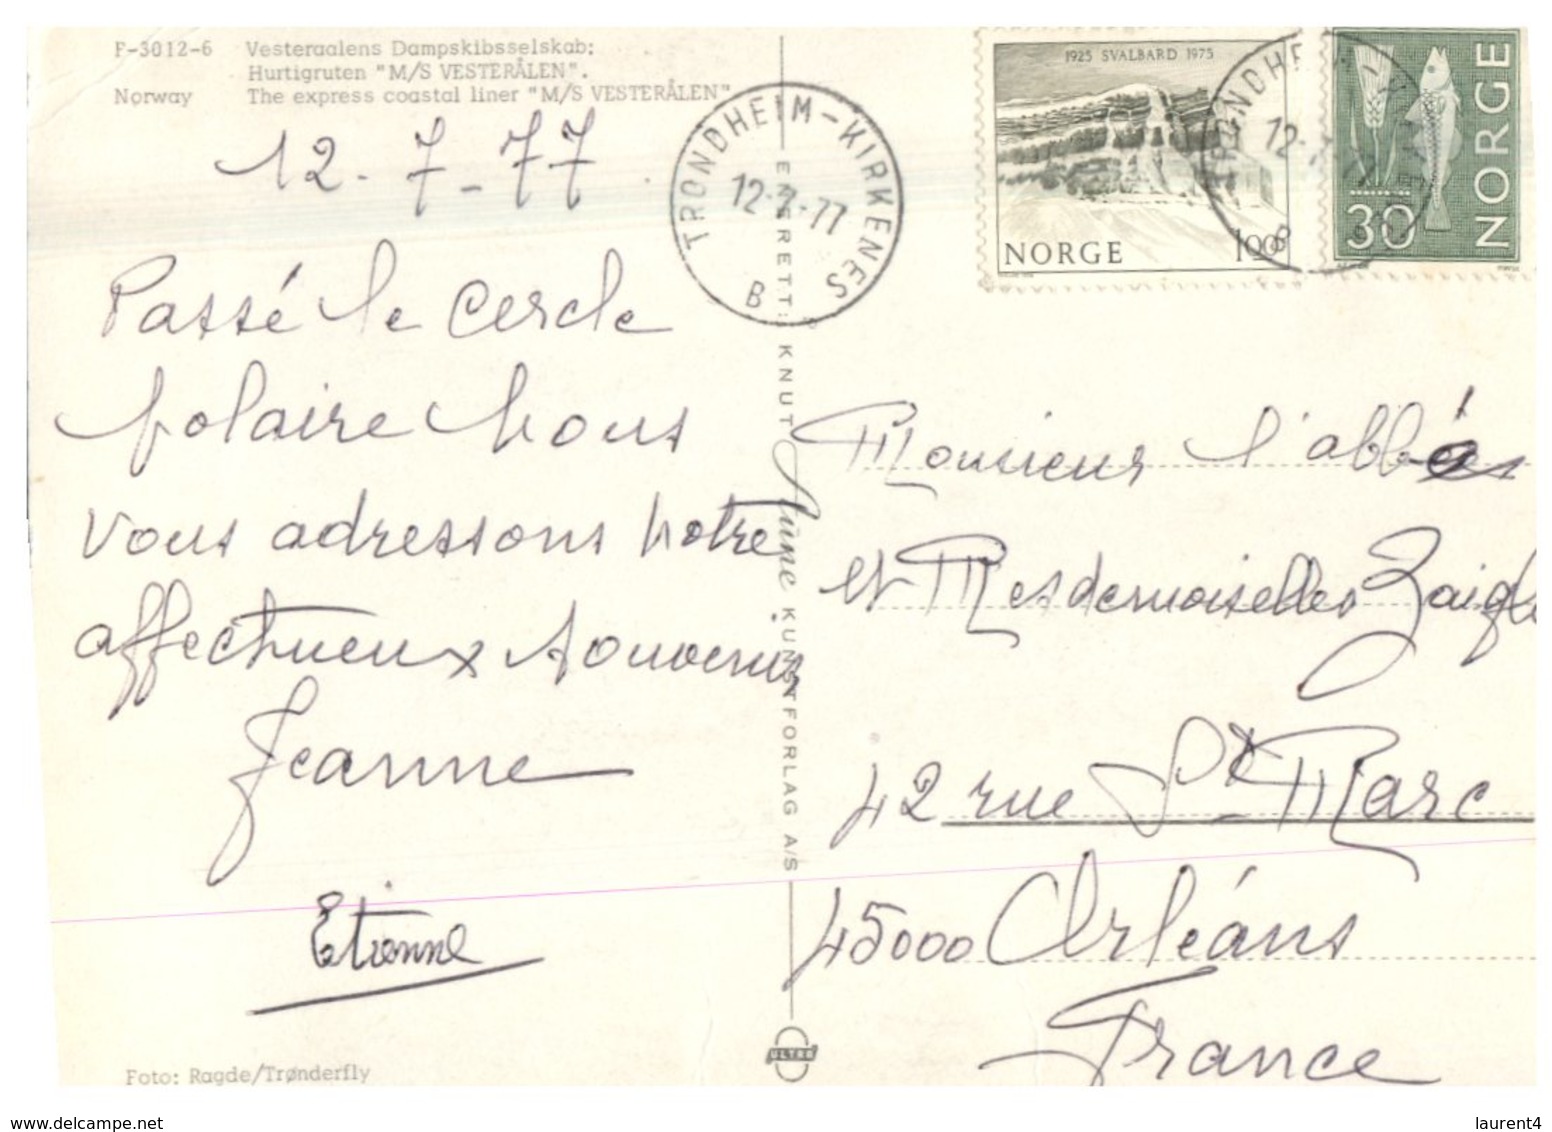 F-3012-6 Vesteraalens Dampskibsselskab:
Hurtigruten "M/S VESTERÅLEN".
Norway The express coastal liner "M/S VESTERÅLEN"
12-7-77
Passé le cercle
polaire nous
vous adressons notre
affectueux souvenir
Jeanne
Etienne
Foto: Ragde/Trønderfly
ENERETT: KNUT Aune KUNSTFORLAG A/S
ULTRA
TRONDHEIM-KIRKENES
12-7-77
B
1925 SVALBARD 1975
NORGE 100
TRONDHEIM
12-7-77
B
NORGE
30
Monsieur l'abbé
et Mesdemoiselles Zaigl
42 rue St Marc
45000 Orléans
France
laurent4